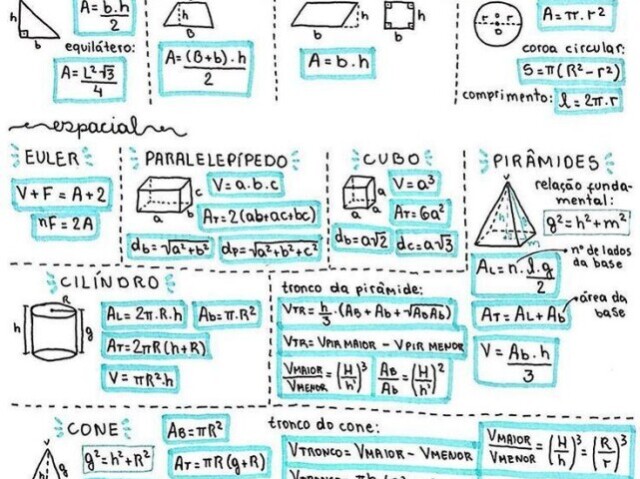 h
b
A = b.h/2
equilátero:
A = L²√3/4
h
B
A = (B+b).h/2
h
b
h
b
A = b.h
r o r
A = π.r²
coroa circular:
S = π(R² - r²)
comprimento: l = 2π.r
espacial
EULER
V + F = A + 2
nF = 2A
PARALELEPÍPEDO
a
b
c
V = a.b.c
AT = 2(ab+ac+bc)
db = √a²+b²
dp = √a²+b²+c²
CUBO
a
a
a
V = a³
AT = 6a²
db = a√2
dc = a√3
PIRÂMIDES
V
h
g
m
relação funda-
mental:
g² = h² + m²
AL = n. l.g/2
nº de lados
da base
AT = AL + Ab
área da
base
V = Ab.h/3
CILINDRO
R
h
g
AL = 2π.R.h
Ab = π.R²
AT = 2πR(h+R)
V = πR².h
tronco da pirâmide:
VTR = h/3 .(AB + Ab + √ABAb)
VTR = VPIR MAIOR - VPIR MENOR
VMAIOR/VMENOR = (H/h)³
AB/Ab = (H/h)²
CONE
V
g
g² = h² + R²
AB = πR²
AT = πR(g+R)
tronco do cone:
VTRONCO = VMAIOR - VMENOR
VMAIOR/VMENOR = (H/h)³ = (R/r)³